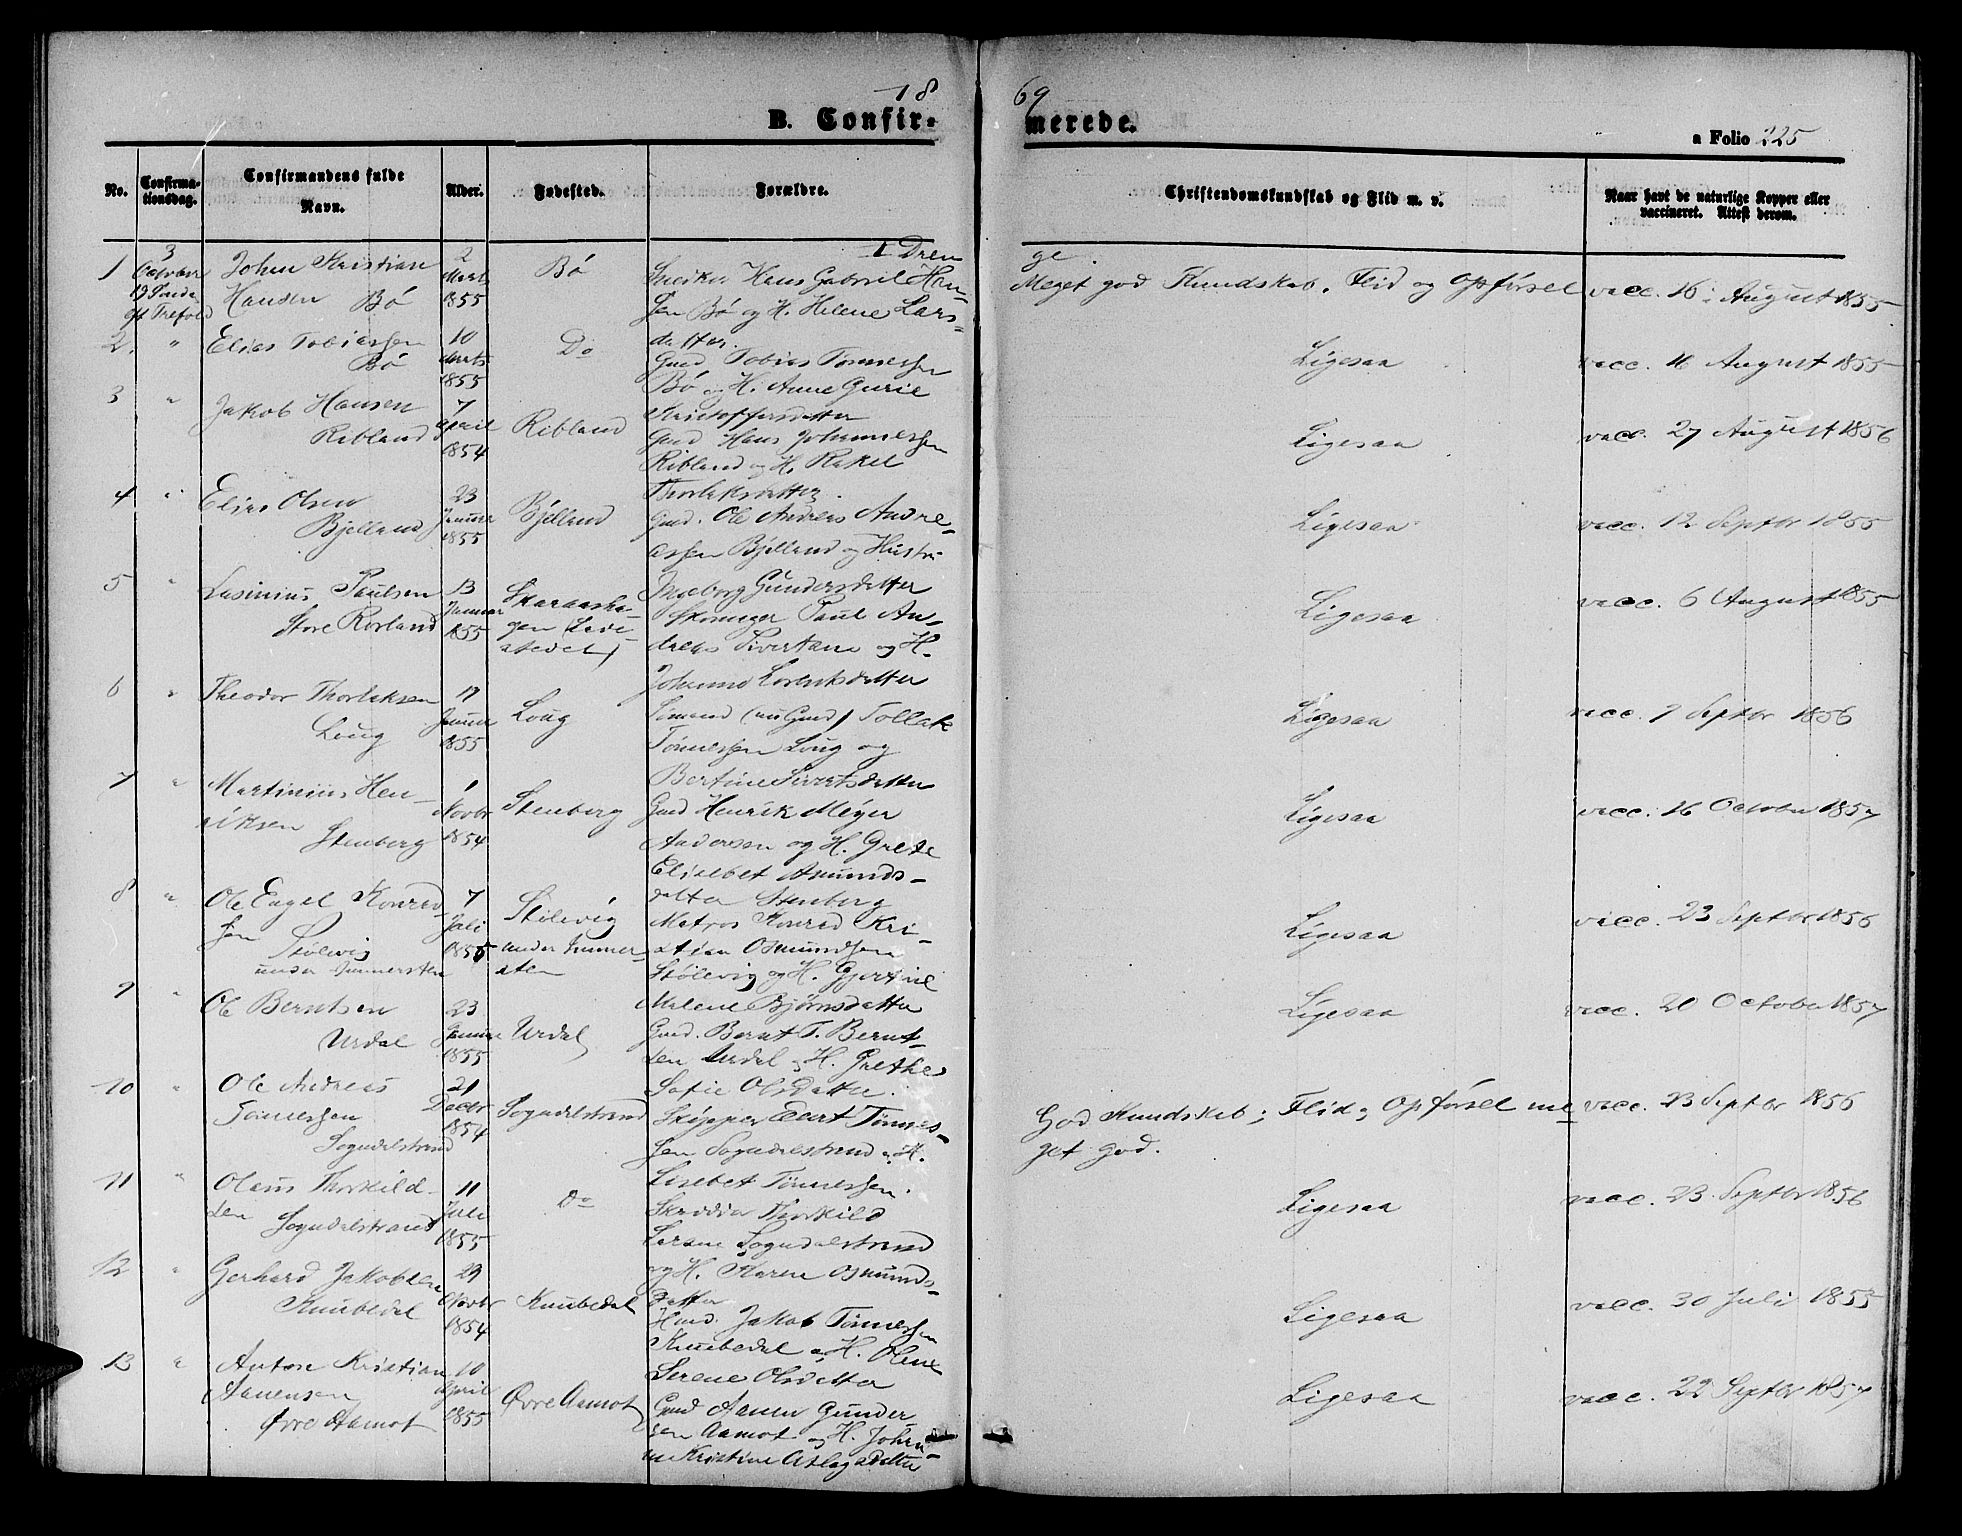 18
69
B. Confir-
merede.
a Folio 225
No.
Confirma-
tionsdag.
Confirmandens fulde
Navn.
Alder.
Fødested.
Forældre.
Christendomskundskab og Flid m. v.
Naar havt de naturlige Kopper eller
vaccineret. Attest derom.
I Dren
ge.
1
3
October
19 Sønda
eft Trefold
Johan Kristian
Hansen Bö
2
Marts
1855
Bö
Snedker Hans Gabriel Han-
sen Bö og H. Helene Lars-
datter.
Meget god Kundskab, Flid og Opförsel
vacc. 16 August 1855
2. "
Elias Tobiassen
Bö
10
Marts
1855
Do
Gmd Tobias Tönnessen
Bö og H. Anne Gurie
Kristoffersdatter
Ligesaa
vacc. 16 August 1855
3 "
Jakob Hansen
Ribland
7
April
1854
Ribland
Gmd Hans Johannessen
Ribland og H. Rakel
Thorlaksdatter.
Ligesaa
vacc. 27 August 1856
4 "
Elias Olsen
Bjelland
23
Januar
1855
Bjelland
Gmd. Ole Andreas Andre-
assen Bjelland og Hustru
Ingeborg Gundersdatter
Ligesaa
vacc. 12 Septbr 1855
5 "
Paulsen
Store Rörland
13
Januar
1855
Skomager Paul An-
dreas og H.
Johanne Lorentsdatter
Ligesaa
vacc. 6 August 1855
6 "
Theodor Thorlaksen
Loug
17
Januar
1855
Loug
Sömand (nu Gmd) Tollak
Tönnessen Loug og
Bertine Sivertsdatter
Ligesaa
vacc. 9 Septbr 1856
7 "
Martinius Hen-
riksen
Stenberg
1
Novbr
1854
Stenberg
Gmd Henrik Meyer
Andersen og H. Grete
Elisebet Asmunds-
datter Stenberg
Ligesaa
vacc. 16 October 1857
8 "
Ole Engel Konrad-
sen
Stölevig
7
Juli
1855
Stölevig
Matros Konrad Kri-
stian Osmundsen
Stölevig og H. Gjertine
Malene Björnsdatter
Ligesaa
vacc. 23 Septbr 1856
9 "
Ole Berntsen
Urdal
23
Januar
1855
Urdal
Gmd. Bernt T. Bernt-
sen Urdal og H. Grethe
Sofie Olsdatter.
Ligesaa
vacc. 20 October 1857
10 "
Ole Andreas
Tönnessen
Sogndalstrand
21
Decbr
1854
Sogndalstrand
Skipper Evert Tönnes-
sen Sogndalstrand og H.
Lisebet Tönnessen.
God Kundskab; Flid, Opförsel me
get god.
vacc. 23 Septbr 1856
11 "
Olaus Thorkild-
sen
Sogndalstrand
11
Juli
1855
Do
Skrædder Thorkild
Larsen Sogndalstrand
og H. Karen Osmunds-
datter
Ligesaa
vacc. 23 Septbr 1856
12 "
Gerhard Jakobsen
Knubedal
29
Novbr
1854
Knubedal
Jakob Tönnessen
Knubedal og H. Olene
Serene Olsdatter
Ligesaa
vacc. 30 Juli 1855
13 "
Anton Kristian
Aanensen
Øvre Aamot
10
April
1855
Øvre Aamot
Gmd Aanen Gunder
sen Aamot og H. Johan-
ne Kristine Aslagsdatter
Ligesaa
vacc. 22 Septbr 1857